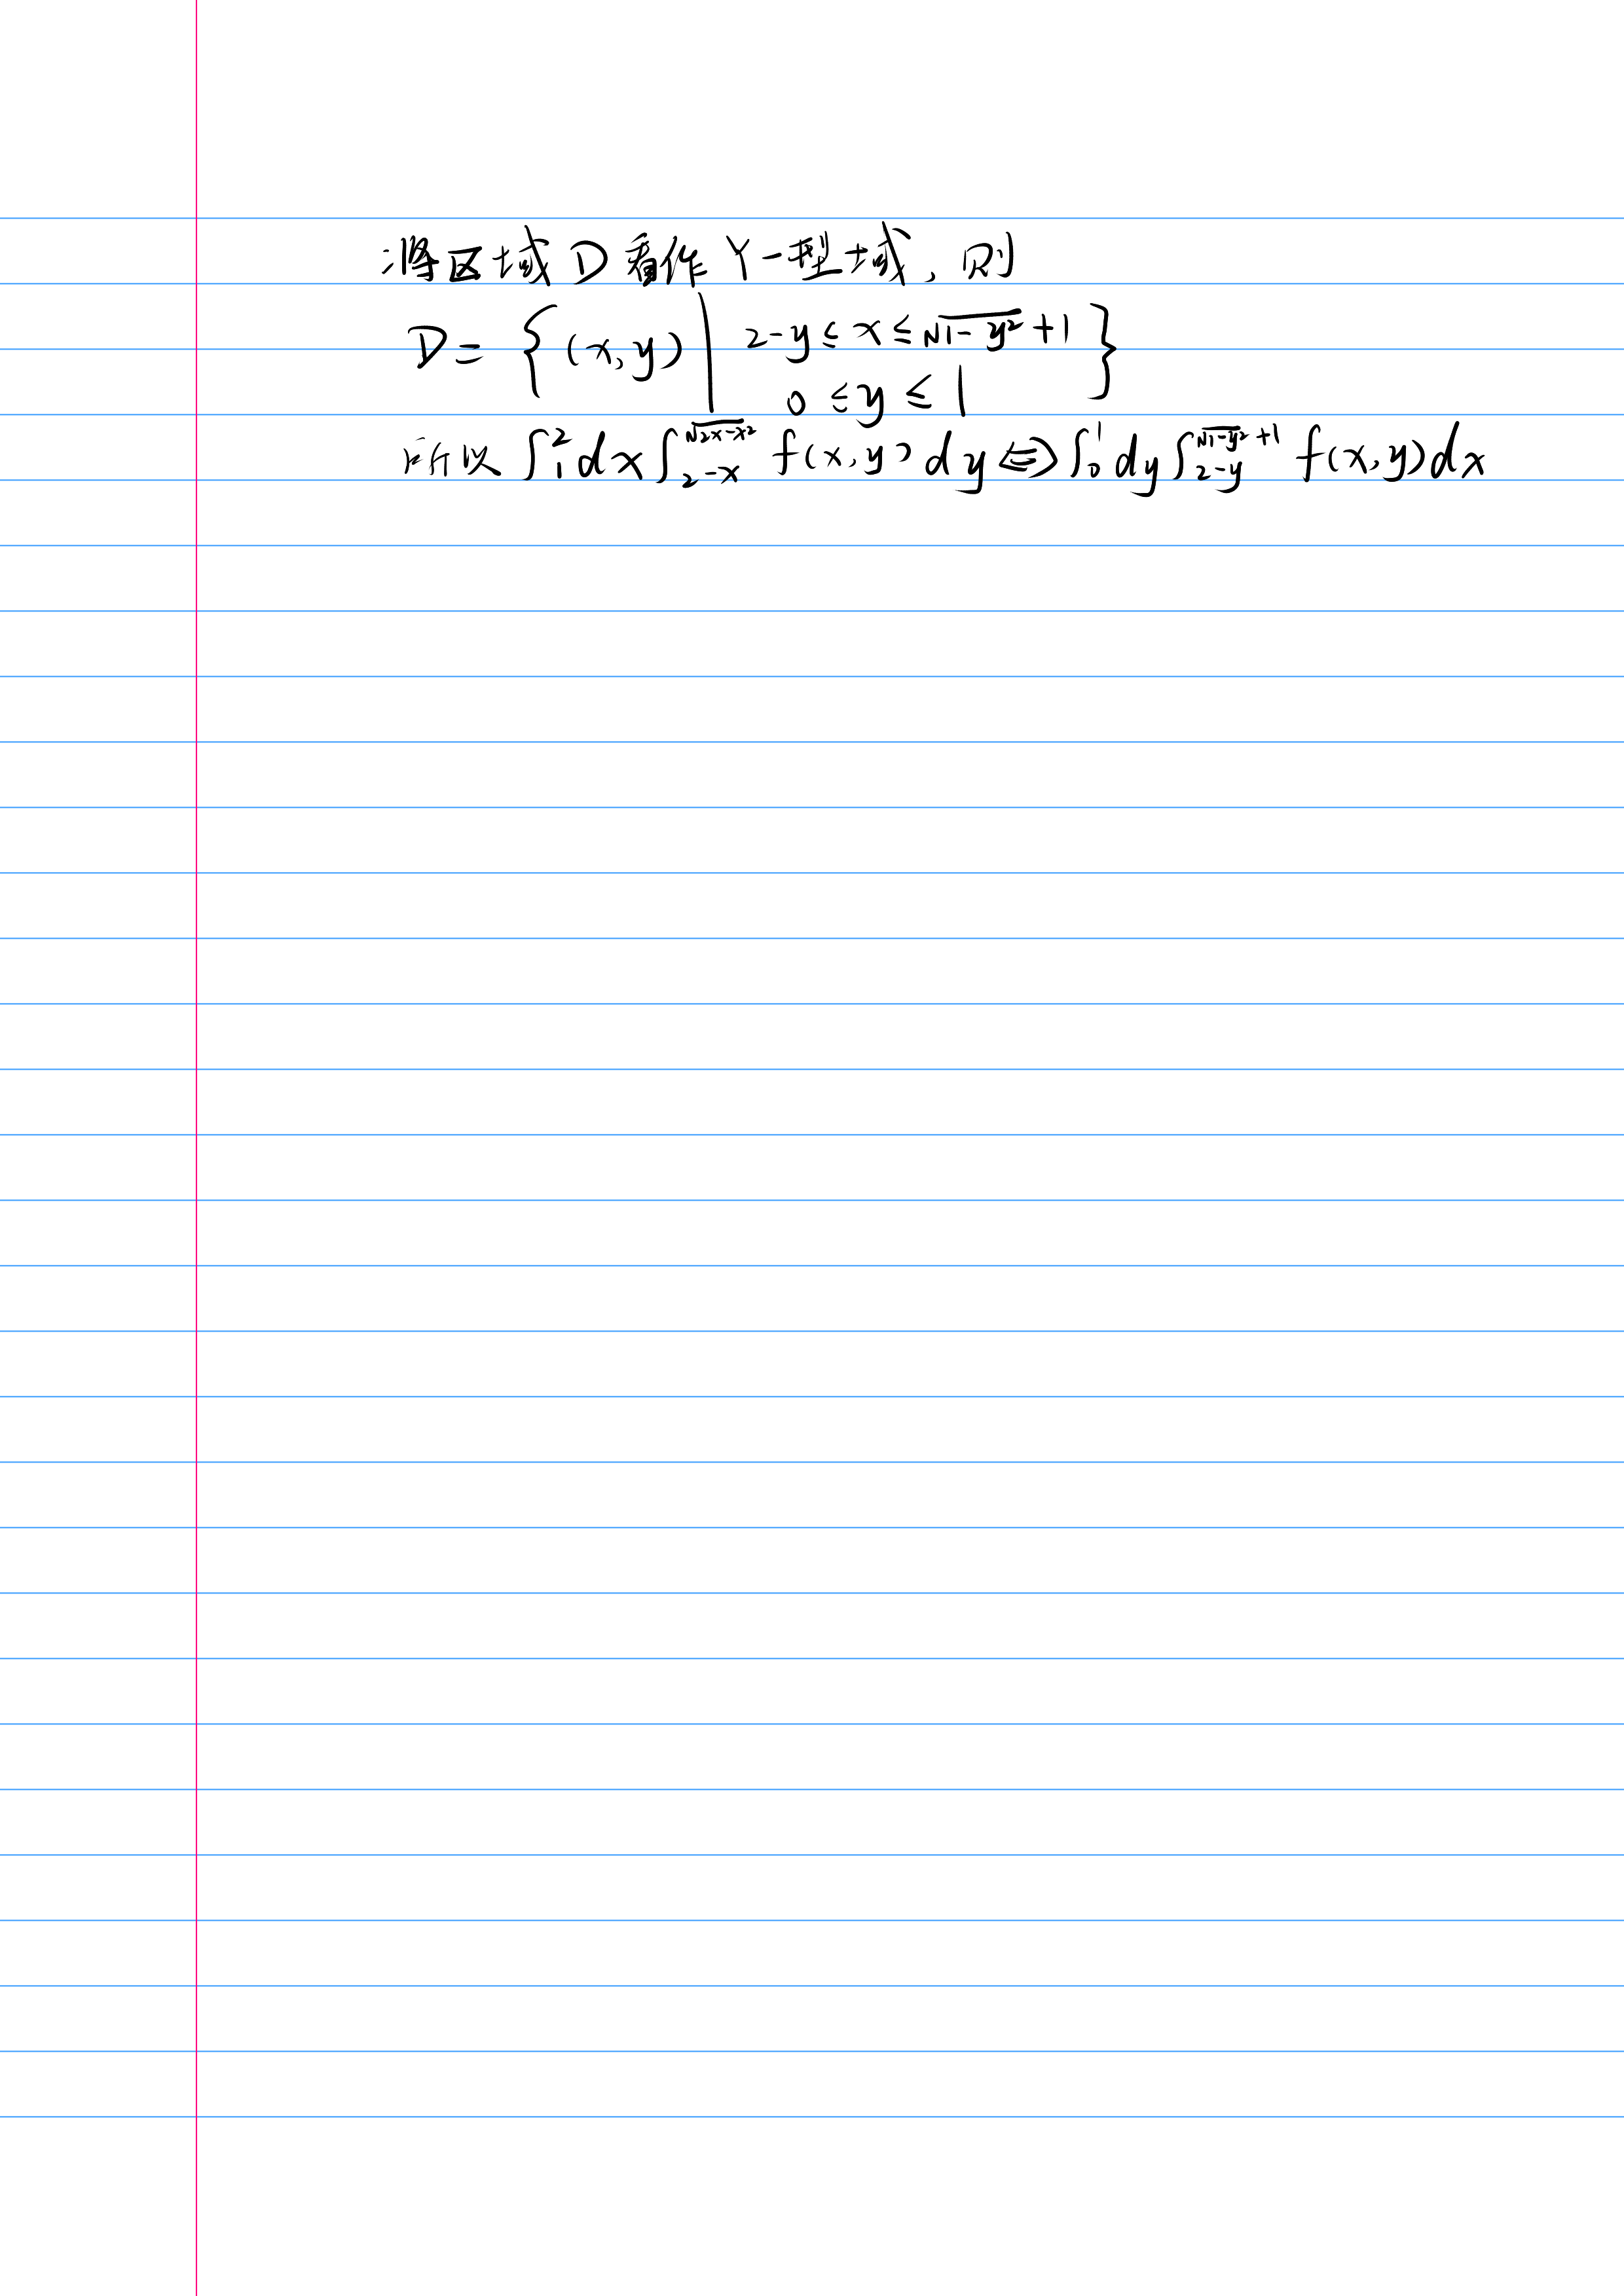 将区域D看作Y-型域,则
D={(x,y)|2-y≤x≤√(1-y²)+1
0≤y≤1}
所以∫₁²dx∫_{2-x}^{√(2x-x²)}f(x,y)dy⇔∫₀¹dy∫_{2-y}^{√(1-y²)+1}f(x,y)dx